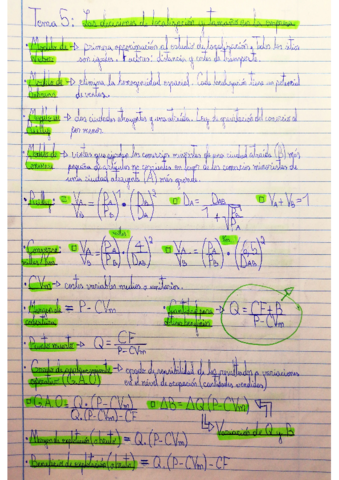 Tema 5: Las decisiones de localización y tamaño en la empresa
· Modelo de Weber → primera aproximación al estudio de localización. Todos los sitios
son iguales. Factores: distancia y costes de transporte.
· Modelo de → elimina la homogeneidad espacial. Cada localización tiene un potencial
de ventas.
· Modelo de Reilly → dos ciudades atrayentes y una atraída. Ley de gravitación del comercio al
por menor.
· Modelo de Converse → ventas que pierden los comercios minoristas de una ciudad atraída (B) más
pequeña al adquirirlos en lugar de los comercios minoristas de
una ciudad atrayente (A) más grande.
· Reilly: □ VA/VB = (PA/PB)^1 · (DB/DA)^2 □ DA = DAB / 1 + √PB/PA □ VA + VB = 1
· Converse: □ VA/VB = (PA/PB) · (4/DAB)^2 □ VA/VB = (PA/PB) · (6.5/DAB)^2
millas km
· CVm → costes variables medios o unitarios.
· Margen de cobertura = P - CVm
Cantidad para obtener beneficio → Q = CF + B / P - CVm
· Punto muerto → Q = CF / P - CVm
· Grado de apalancamiento operativo (G.A.O) → grado de sensibilidad de los resultados a variaciones
en el nivel de ocupación (cantidades vendidas)
□ G.A.O = Q · (P - CVm) / Q · (P - CVm) - CF □ ΔB = ΔQ (P - CVm)
↳ Variación de Q y B
· Margen de explotación (+ bruto) = Q · (P - CVm)
· Beneficio de explotación (+ bruto) = Q · (P - CVm) - CF